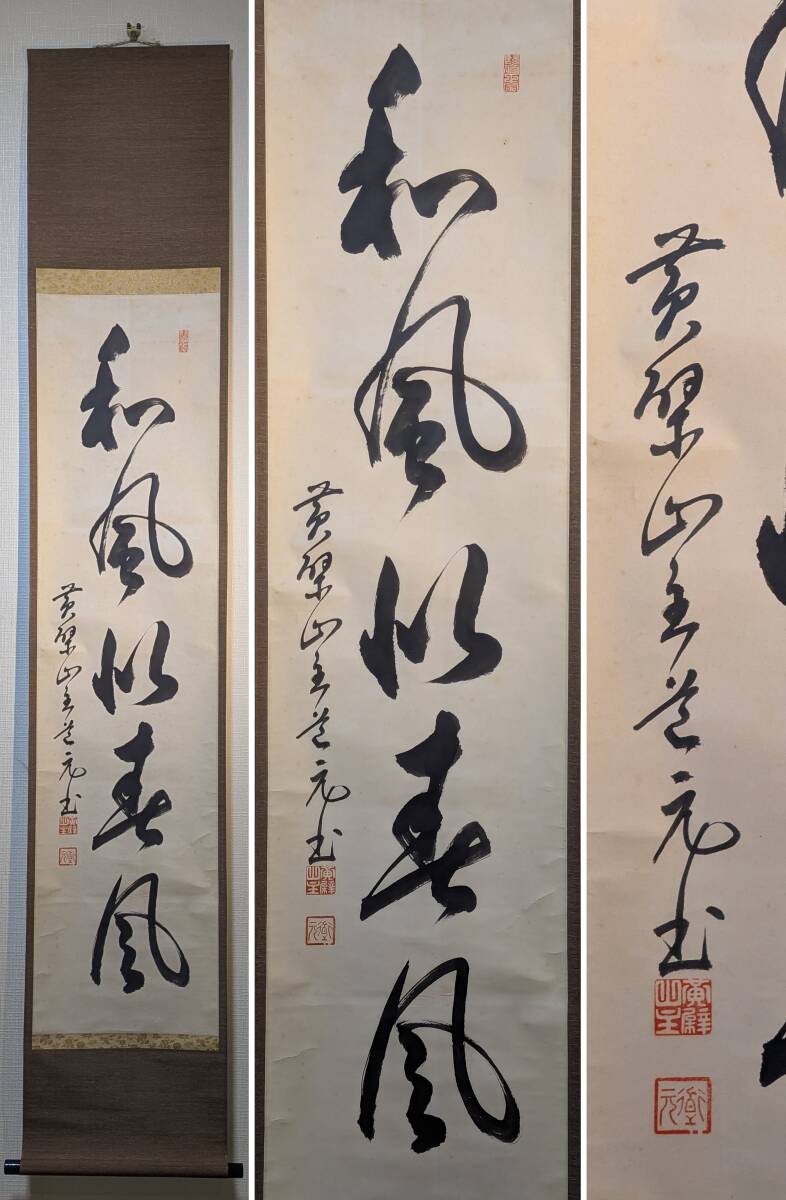 和風似春風
黄檗山主道元書
黄檗山主
和風似春風
黄檗山主道元書
黄檗山主
黄檗山主道元書
黄檗山主